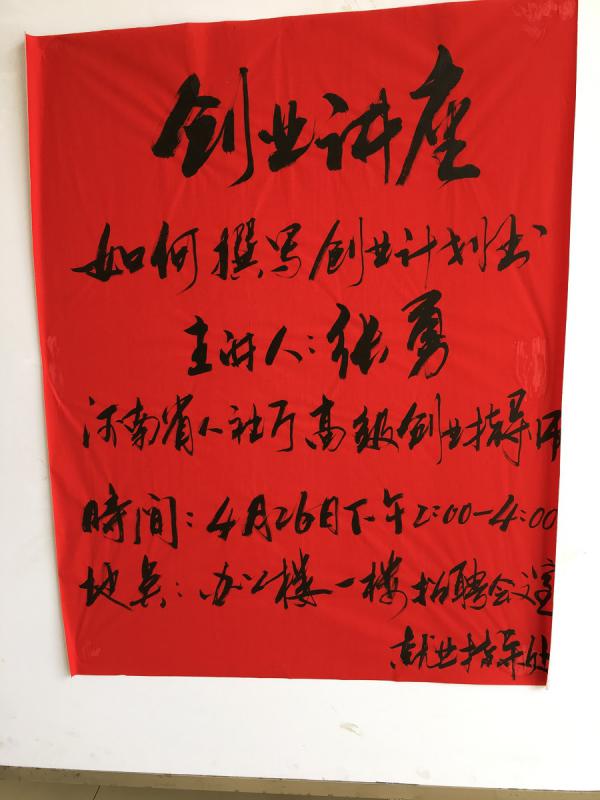 创业讲座
如何撰写创业计划书
主讲人:张勇
河南省人社厅高级创业指导师
時间:4月26日下午2:00-4:00
地点:办公楼一楼招聘会议室
就业指导处